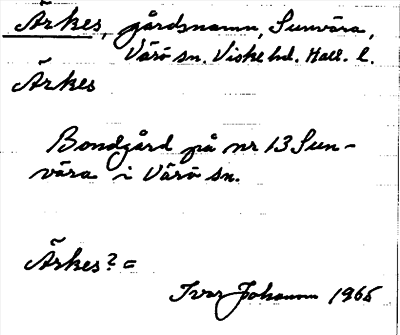 Ärkes, gårdsnamn, Sunvära,
Värö sn. Viske hd. Hall. l.
Ärkes
Bondgård på nr 13 Sun-
vära i Värö sn.
Ärkes? =
Ivar Johanson 1965